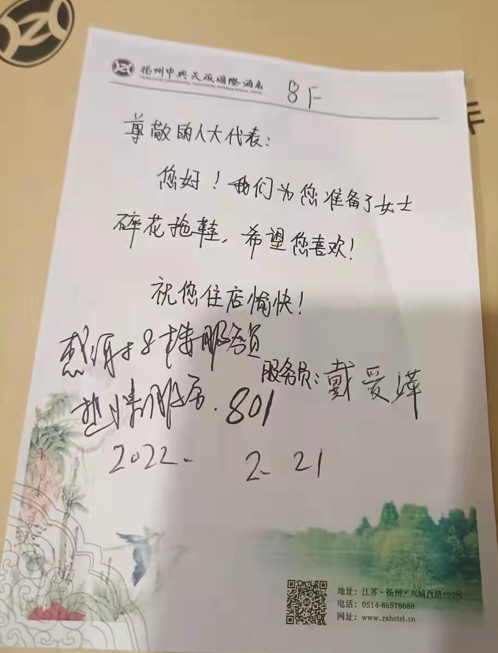 扬州中兴天成国际酒店
8F
尊敬的人大代表:
您好!我们为您准备了女士
碎花拖鞋,希望您喜欢!
祝您住店愉快!
感谢才8楼服务员
服务员:戴爱萍
热情服务.801
2022. 2.21
地址:江苏·扬州·兴城西路
电话:0514-86578888
网址:www.zxhotel.cn